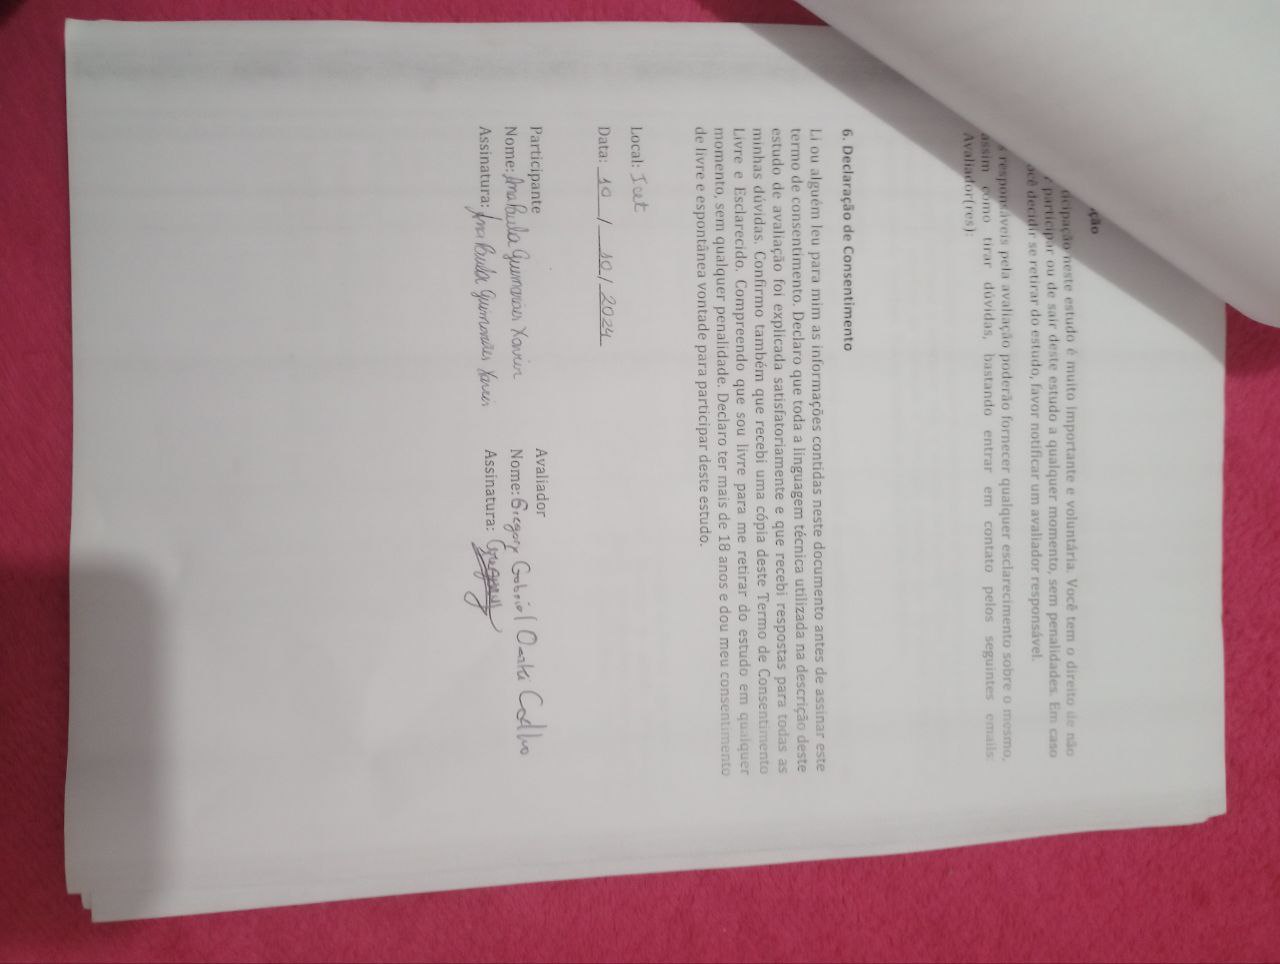 ção
ticipação neste estudo é muito importante e voluntária. Você tem o direito de não
participar ou de sair deste estudo a qualquer momento, sem penalidades. Em caso
ocê decidir se retirar do estudo, favor notificar um avaliador responsável.
s responsáveis pela avaliação poderão fornecer qualquer esclarecimento sobre o mesmo,
assim como tirar dúvidas, bastando entrar em contato pelos seguintes emails:
Avaliador(res):
6. Declaração de Consentimento
Li ou alguém leu para mim as informações contidas neste documento antes de assinar este
termo de consentimento. Declaro que toda a linguagem técnica utilizada na descrição deste
estudo de avaliação foi explicada satisfatoriamente e que recebi respostas para todas as
minhas dúvidas. Confirmo também que recebi uma cópia deste Termo de Consentimento
Livre e Esclarecido. Compreendo que sou livre para me retirar do estudo em qualquer
momento, sem qualquer penalidade. Declaro ter mais de 18 anos e dou meu consentimento
de livre e espontânea vontade para participar deste estudo.
Local: Icet
Data: 10 / 10 / 2024
Participante
Nome: Ana Paula Guimarães Xavier
Assinatura: Ana Paula Guimarães Xavier
Avaliador
Nome: Gregory Gabriel Ozaki Coelho
Assinatura: Gregory